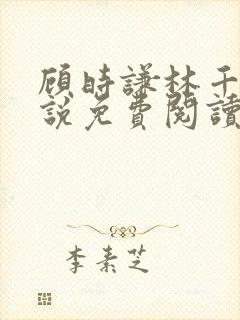 顾時謙林千
說免費閱讀
李素芝